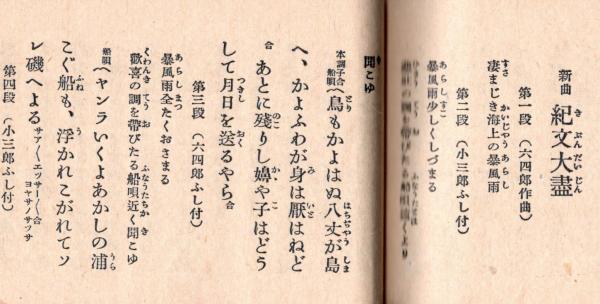 新曲 紀文大盡
第一段 (六四郎作曲)
凄まじき海上の暴風雨
第二段 (小三郎ふし付)
暴風雨少しくしづまる
聞こゆ
本調子合船唄〽鳥もかよはぬ八丈が島
へ、かよふわが身は厭はねど
合あとに殘りし嬶や子はどう
して月日を送るやら合
第三段 (六四郎ふし付)
暴風雨全たくおさまる
歡喜の調を帶びたる船唄近く聞こゆ
船唄〽ヤンラいくよあかしの浦
こぐ船も、浮かれこがれてソ
レ磯へよるサア〱エッサー〱合ヨヤサノサツサ
第四段 (小三郎ふし付)